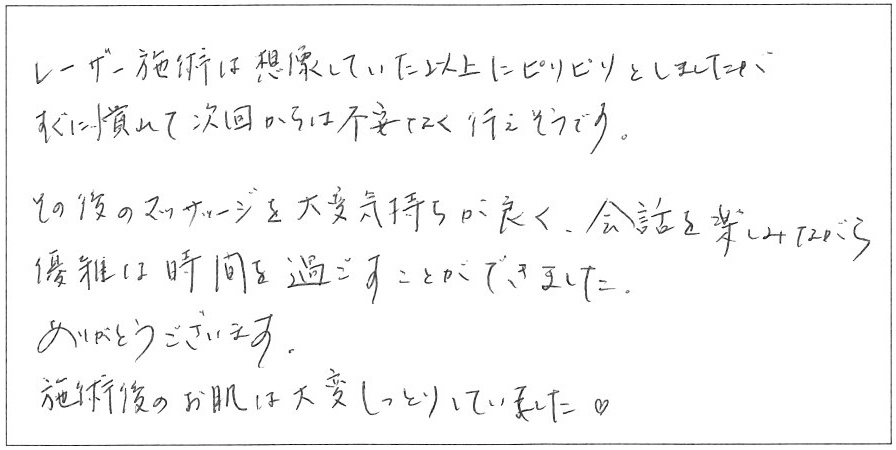 レーザー施術は想像していた以上にピリピリとしましたが
すぐに慣れて次回からは不安なく行えそうです。
その後のマッサージも大変気持ちが良く、会話を楽しみながら
優雅な時間を過ごすことができました。
ありがとうございます。
施術後のお肌は大変しっとりしていました♡